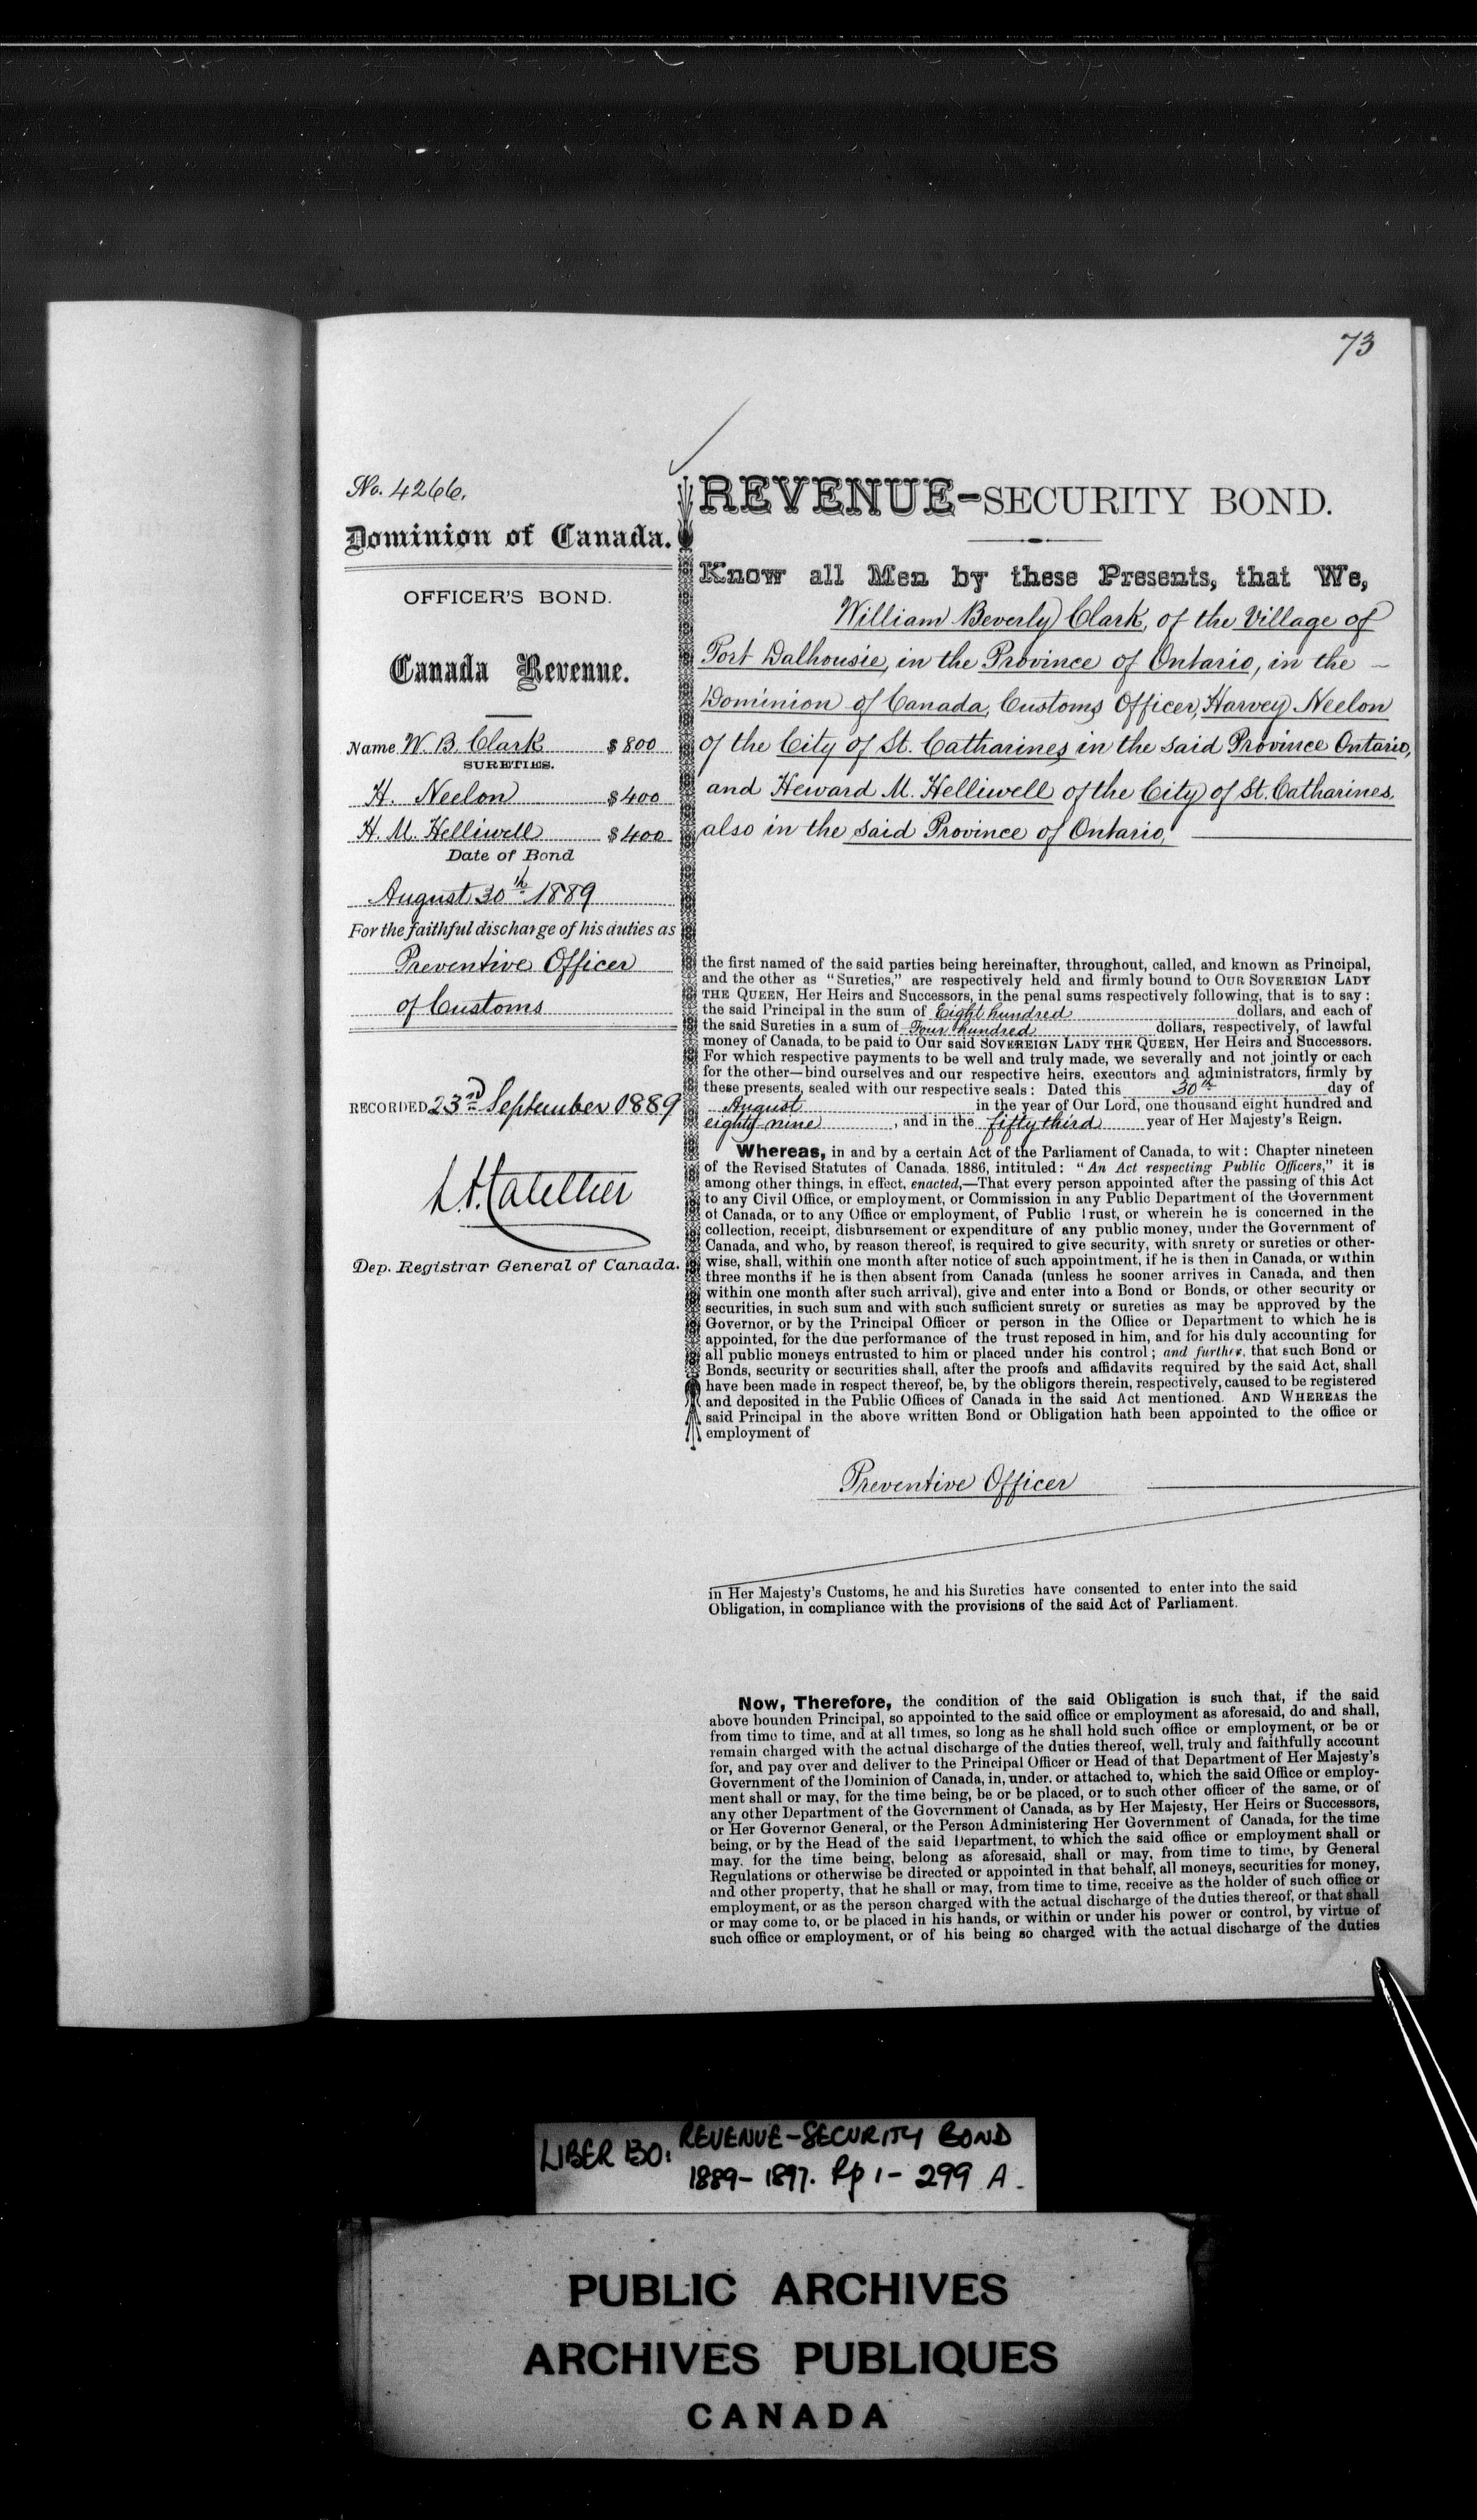 73
No. 4266.
Dominion of Canada.
OFFICER'S BOND.
Canada Revenue.
Name W. B. Clark $800
SURETIES.
H. Neelon $400
H. M. Helliwell $400
Date of Bond
August 30th 1889
For the faithful discharge of his duties as
Preventive Officer
of Customs
RECORDED 23rd September 1889
Dep. Registrar General of Canada.
REVENUE-SECURITY BOND.
Know all Men by these Presents, that We,
William Beverly Clark, of the Village of
Port Dalhousie, in the Province of Ontario, in the –
Dominion of Canada, Customs Officer, Harvey Neelon
of the City of St. Catharines in the said Province Ontario,
and Heward M. Helliwell of the City of St. Catharines,
also in the said Province of Ontario,
the first named of the said parties being hereinafter, throughout, called, and known as Principal,
and the other as "Sureties," are respectively held and firmly bound to OUR SOVEREIGN LADY
THE QUEEN, Her Heirs and Successors, in the penal sums respectively following, that is to say :
the said Principal in the sum of Eight hundred dollars, and each of
the said Sureties in a sum of Four hundred dollars, respectively, of lawful
money of Canada, to be paid to Our said SOVEREIGN LADY THE QUEEN, Her Heirs and Successors.
For which respective payments to be well and truly made, we severally and not jointly or each
for the other—bind ourselves and our respective heirs, executors and administrators, firmly by
these presents, sealed with our respective seals : Dated this 30th day of
August in the year of Our Lord, one thousand eight hundred and
eighty-nine, and in the fifty third year of Her Majesty's Reign.
Whereas, in and by a certain Act of the Parliament of Canada, to wit : Chapter nineteen
of the Revised Statutes of Canada, 1886, intituled : "An Act respecting Public Officers," it is
among other things, in effect, enacted,—That every person appointed after the passing of this Act
to any Civil Office, or employment, or Commission in any Public Department of the Government
of Canada, or to any Office or employment, of Public Trust, or wherein he is concerned in the
collection, receipt, disbursement or expenditure of any public money, under the Government of
Canada, and who, by reason thereof, is required to give security, with surety or sureties or other-
wise, shall, within one month after notice of such appointment, if he is then in Canada, or within
three months if he is then absent from Canada (unless he sooner arrives in Canada, and then
within one month after such arrival), give and enter into a Bond or Bonds, or other security or
securities, in such sum and with such sufficient surety or sureties as may be approved by the
Governor, or by the Principal Officer or person in the Office or Department to which he is
appointed, for the due performance of the trust reposed in him, and for his duly accounting for
all public moneys entrusted to him or placed under his control ; and further, that such Bond or
Bonds, security or securities shall, after the proofs and affidavits required by the said Act, shall
have been made in respect thereof, be, by the obligors therein, respectively, caused to be registered
and deposited in the Public Offices of Canada in the said Act mentioned. AND WHEREAS the
said Principal in the above written Bond or Obligation hath been appointed to the office or
employment of
Preventive Officer
in Her Majesty's Customs, he and his Sureties have consented to enter into the said
Obligation, in compliance with the provisions of the said Act of Parliament.
Now, Therefore, the condition of the said Obligation is such that, if the said
above bounden Principal, so appointed to the said office or employment as aforesaid, do and shall,
from time to time, and at all times, so long as he shall hold such office or employment, or be or
remain charged with the actual discharge of the duties thereof, well, truly and faithfully account
for, and pay over and deliver to the Principal Officer or Head of that Department of Her Majesty's
Government of the Dominion of Canada, in, under, or attached to, which the said Office or employ-
ment shall or may, for the time being, be or be placed, or to such other officer of the same, or of
any other Department of the Government of Canada, as by Her Majesty, Her Heirs or Successors,
or Her Governor General, or the Person Administering Her Government of Canada, for the time
being, or by the Head of the said Department, to which the said office or employment shall or
may, for the time being, belong as aforesaid, shall or may, from time to time, by General
Regulations or otherwise be directed or appointed in that behalf, all moneys, securities for money,
and other property, that he shall or may, from time to time, receive as the holder of such office or
employment, or as the person charged with the actual discharge of the duties thereof, or that shall
or may come to, or be placed in his hands, or within or under his power or control, by virtue of
such office or employment, or of his being so charged with the actual discharge of the duties
LIBER 130: REVENUE-SECURITY BOND
1889-1897. Pp 1-299 A.
PUBLIC ARCHIVES
ARCHIVES PUBLIQUES
CANADA